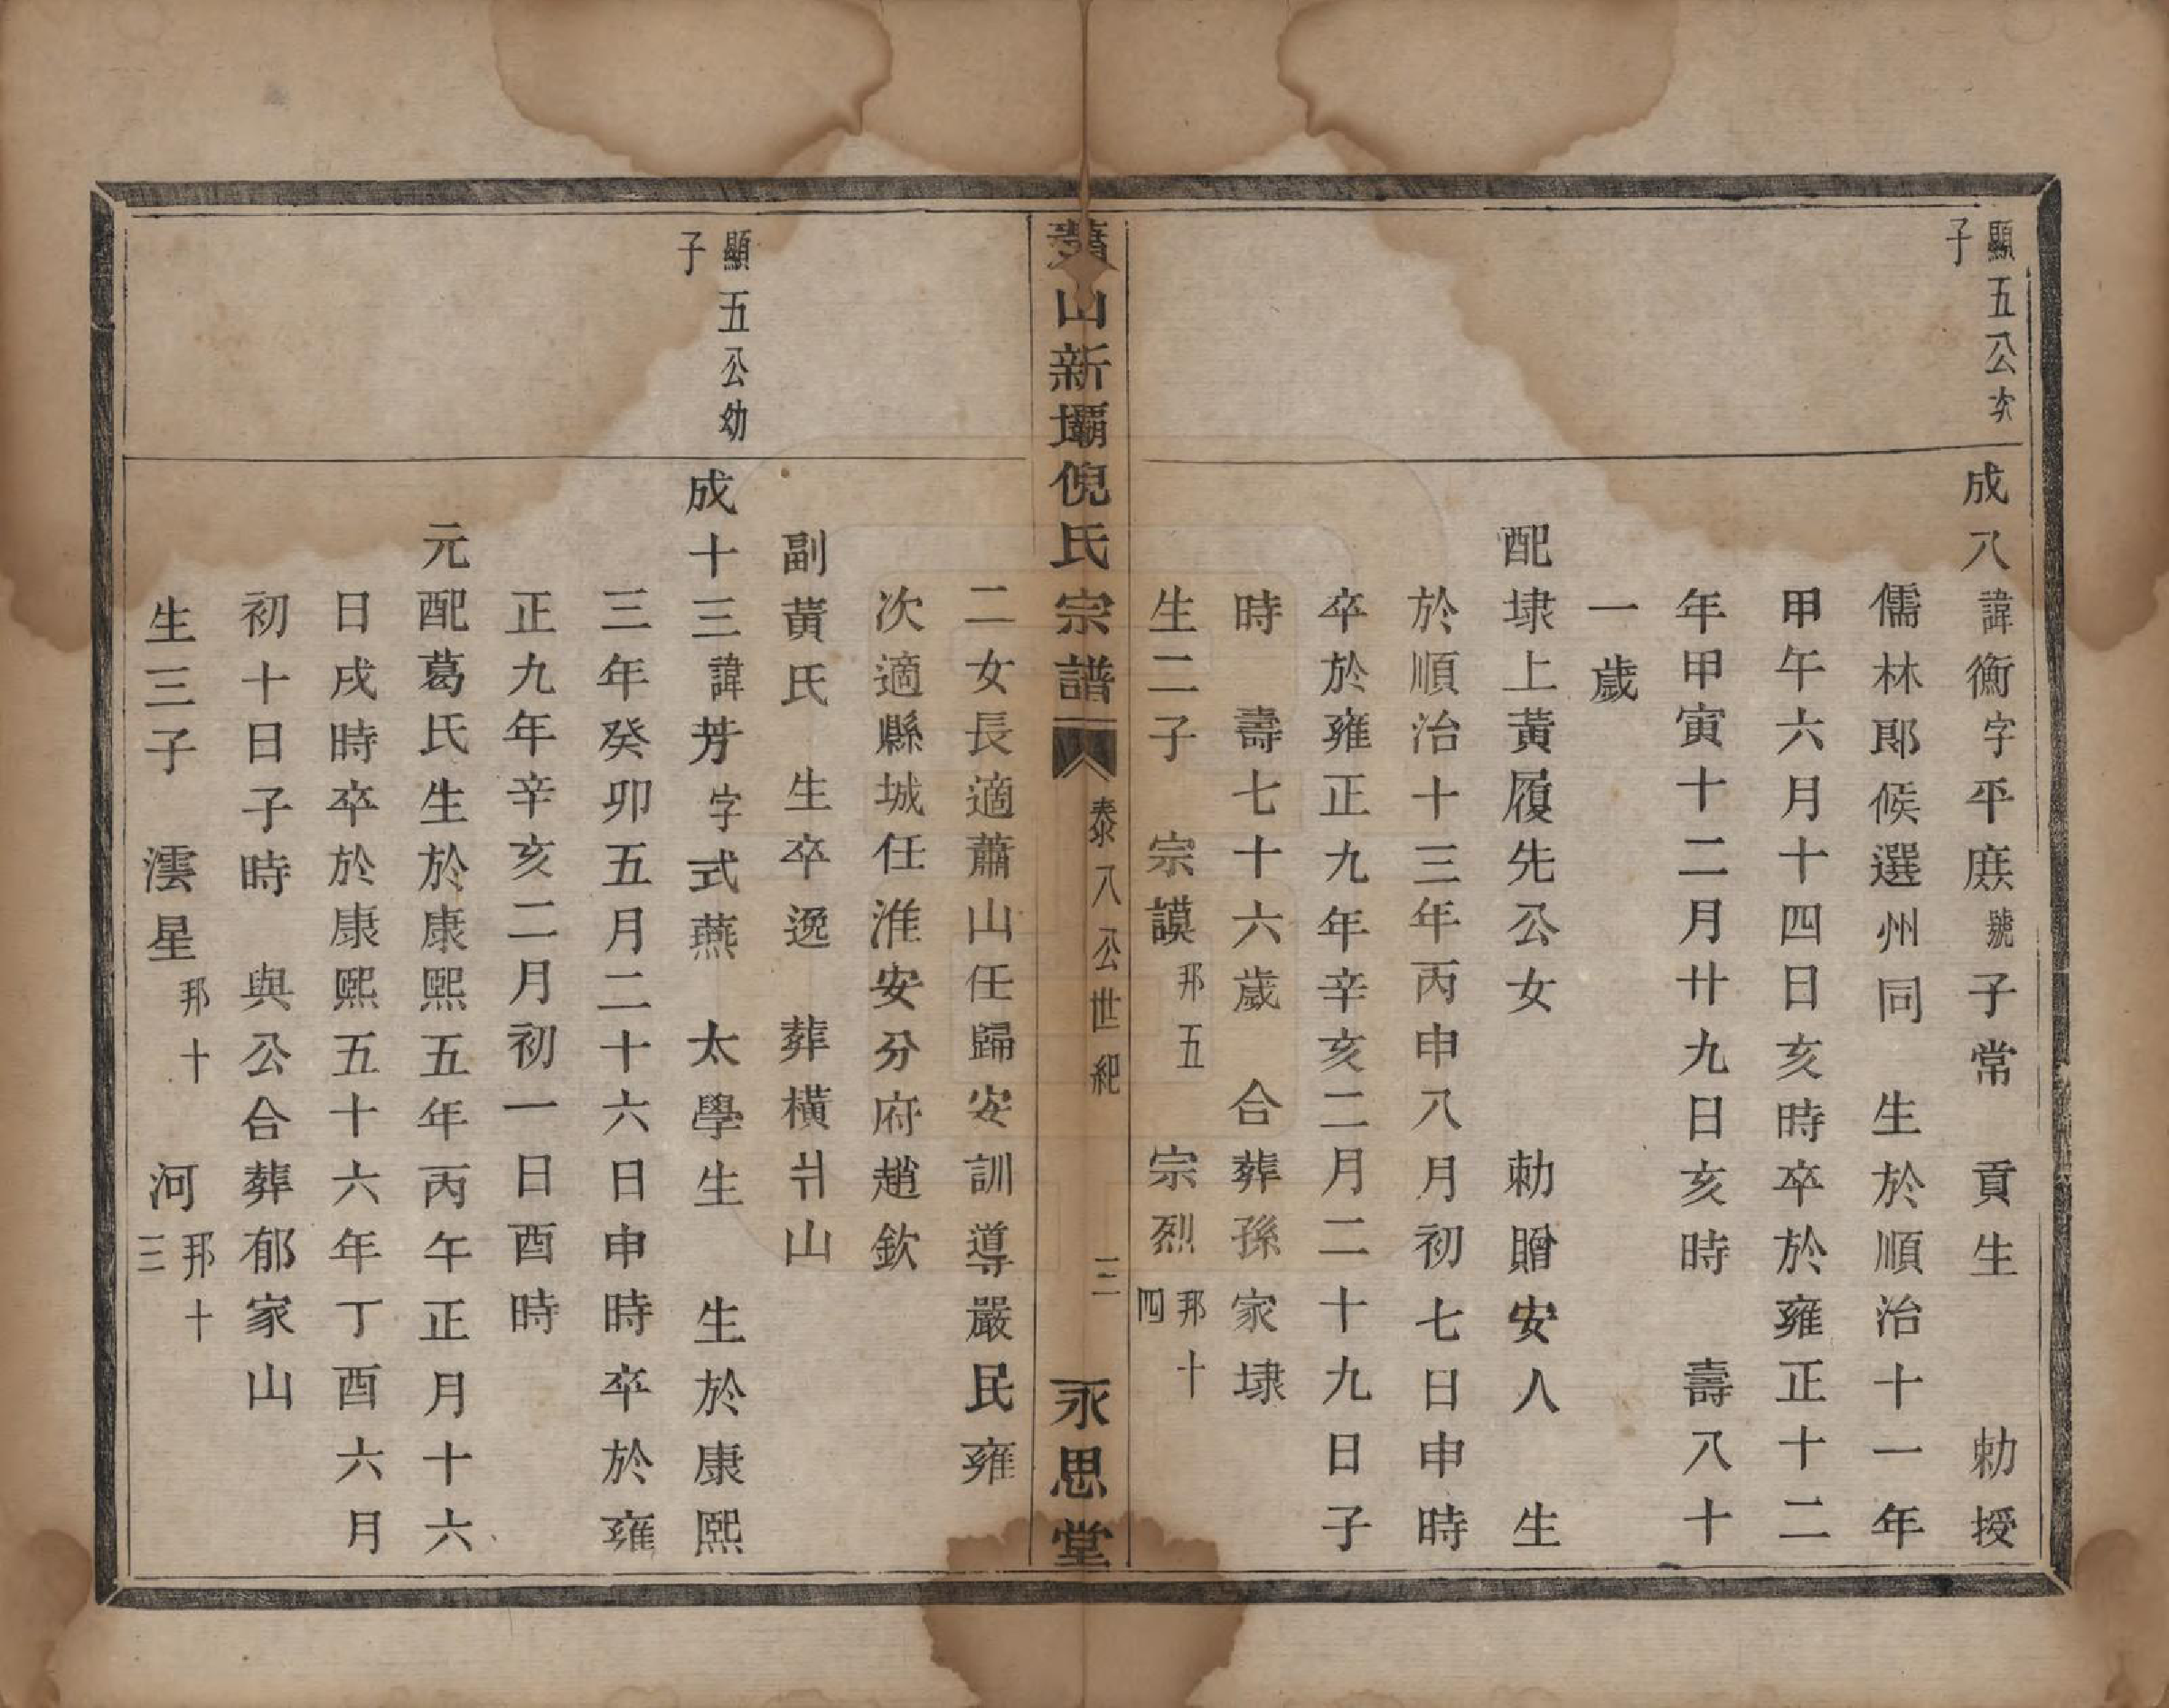 顯五公次子
成八諱衡字平庶號子常　貢生　勅授
儒林郎候選州同　生於順治十一年
甲午六月十四日亥時卒於雍正十二
年甲寅十二月廿九日亥時　壽八十
一歲
配埭上黃履先公女　勅贈安人　生
於順治十三年丙申八月初七日申時
卒於雍正九年辛亥二月二十九日子
時　壽七十六歲　合葬孫家埭
生二子　宗謨邦五　宗烈邦十四
蕭山新壩倪氏宗譜　泰八公世紀　三　永思堂
二女長適蕭山任歸安訓導嚴民雍
次適縣城任淮安分府趙欽
副黃氏　生卒逸　葬橫丩山
顯五公幼子
成十三諱芳字式燕　太學生　生於康熙
三年癸卯五月二十六日申時卒於雍
正九年辛亥二月初一日酉時
元配葛氏生於康熙五年丙午正月十六
日戌時卒於康熙五十六年丁酉六月
初十日子時　與公合葬郁家山
生三子　澐星邦十　河邦十三